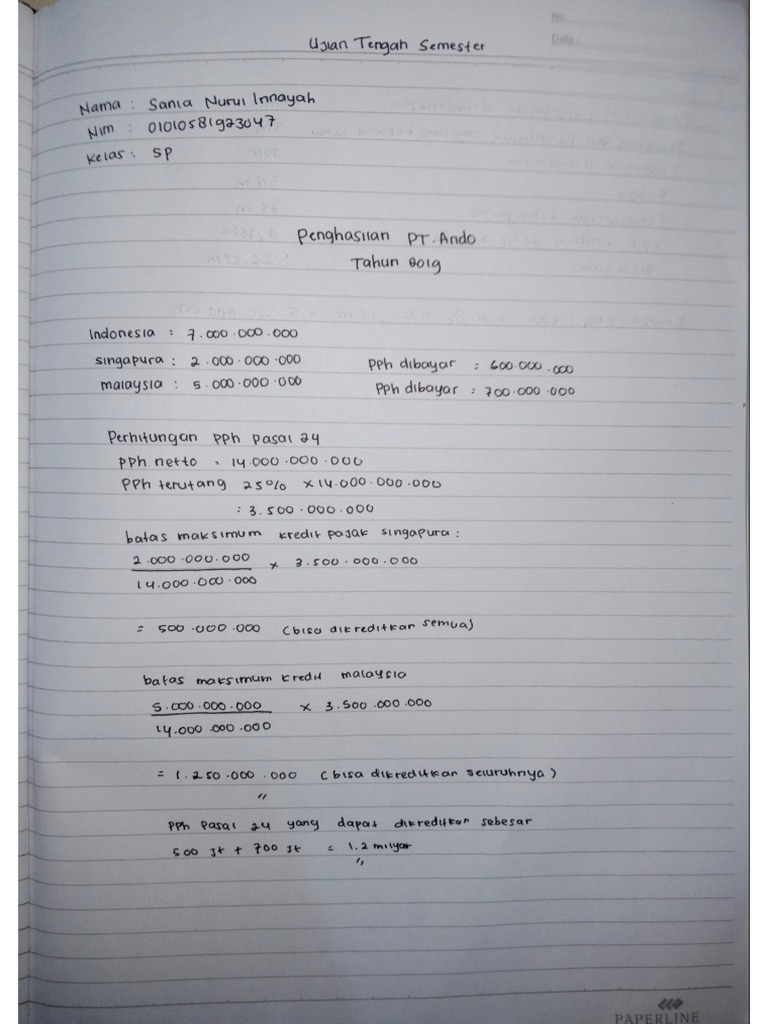 No
Date:
Ujian Tengah Semester
Nama : Sania Nurul Innayah
Nim : 01010581923047
Kelas : SP
Penghasilan PT. Ando
Tahun 2019
Indonesia : 7.000.000.000
Singapura : 2.000.000.000 PPh dibayar : 600.000.000
malaysia : 5.000.000.000 PPh dibayar : 700.000.000
Perhitungan PPh pasal 24
PPh netto . 14.000.000.000
PPh terutang 25% x 14.000.000.000
: 3.500.000.000
batas maksimum kredit pajak singapura :
2.000.000.000 x 3.500.000.000
14.000.000.000
= 500.000.000 (bisa dikreditkan semua)
batas maksimum kredit malaysia
5.000.000.000 x 3.500.000.000
14.000.000.000
= 1.250.000.000 (bisa dikreditkan seluruhnya)
PPh Pasal 24 yang dapat dikreditkan sebesar
500 jt + 700 jt = 1.2 milyar
PAPERLINE